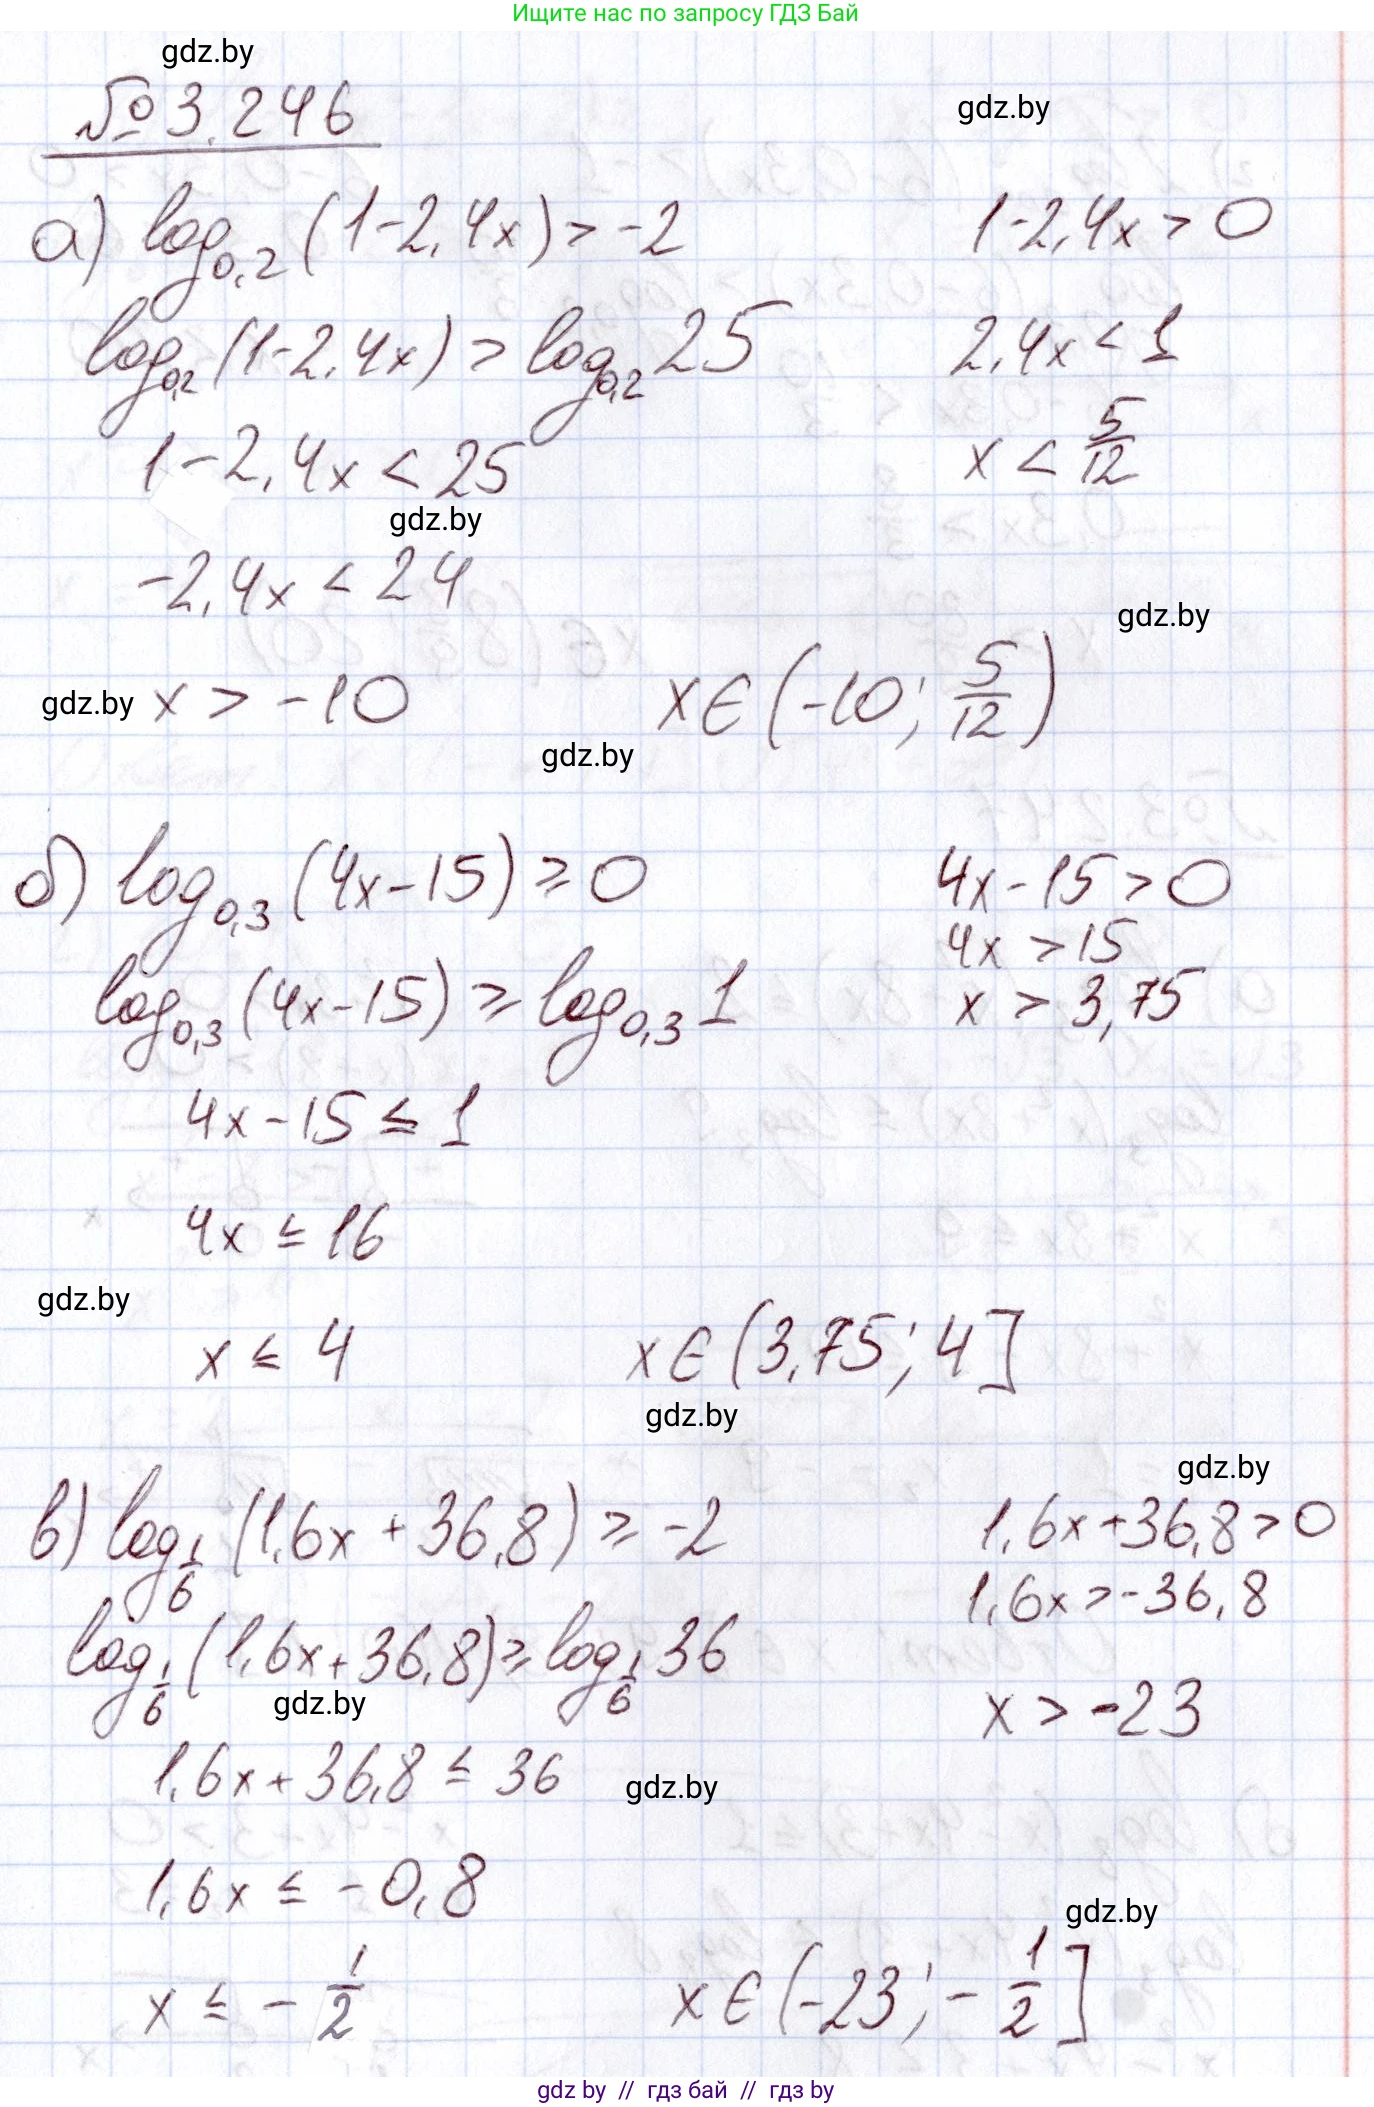 Ищите нас по запросу ГДЗ Бай
gdz.by
№ 3.246
gdz.by
а) log_{0,2} (1-2,4x) > -2
1-2,4x > 0
log_{0,2} (1-2,4x) > log_{0,2} 25
2,4x < 1
1-2,4x < 25
x < \frac{5}{12}
gdz.by
-2,4x < 24
gdz.by
gdz.by
x > -10
x ∈ (-10; \frac{5}{12})
gdz.by
б) log_{0,3} (4x-15) ≥ 0
4x-15 > 0
4x > 15
log_{0,3} (4x-15) ≥ log_{0,3} 1
x > 3,75
4x-15 ≤ 1
4x ≤ 16
gdz.by
x ≤ 4
x ∈ (3,75; 4]
gdz.by
gdz.by
в) log_{\frac{1}{6}} (1,6x + 36,8) ≥ -2
1,6x+36,8 > 0
1,6x > -36,8
log_{\frac{1}{6}} (1,6x+36,8) ≥ log_{\frac{1}{6}} 36
gdz.by
x > -23
1,6x+36,8 ≤ 36
gdz.by
1,6x ≤ -0,8
gdz.by
x ≤ -\frac{1}{2}
x ∈ (-23; -\frac{1}{2}]
gdz by // гдз бай // гдз by